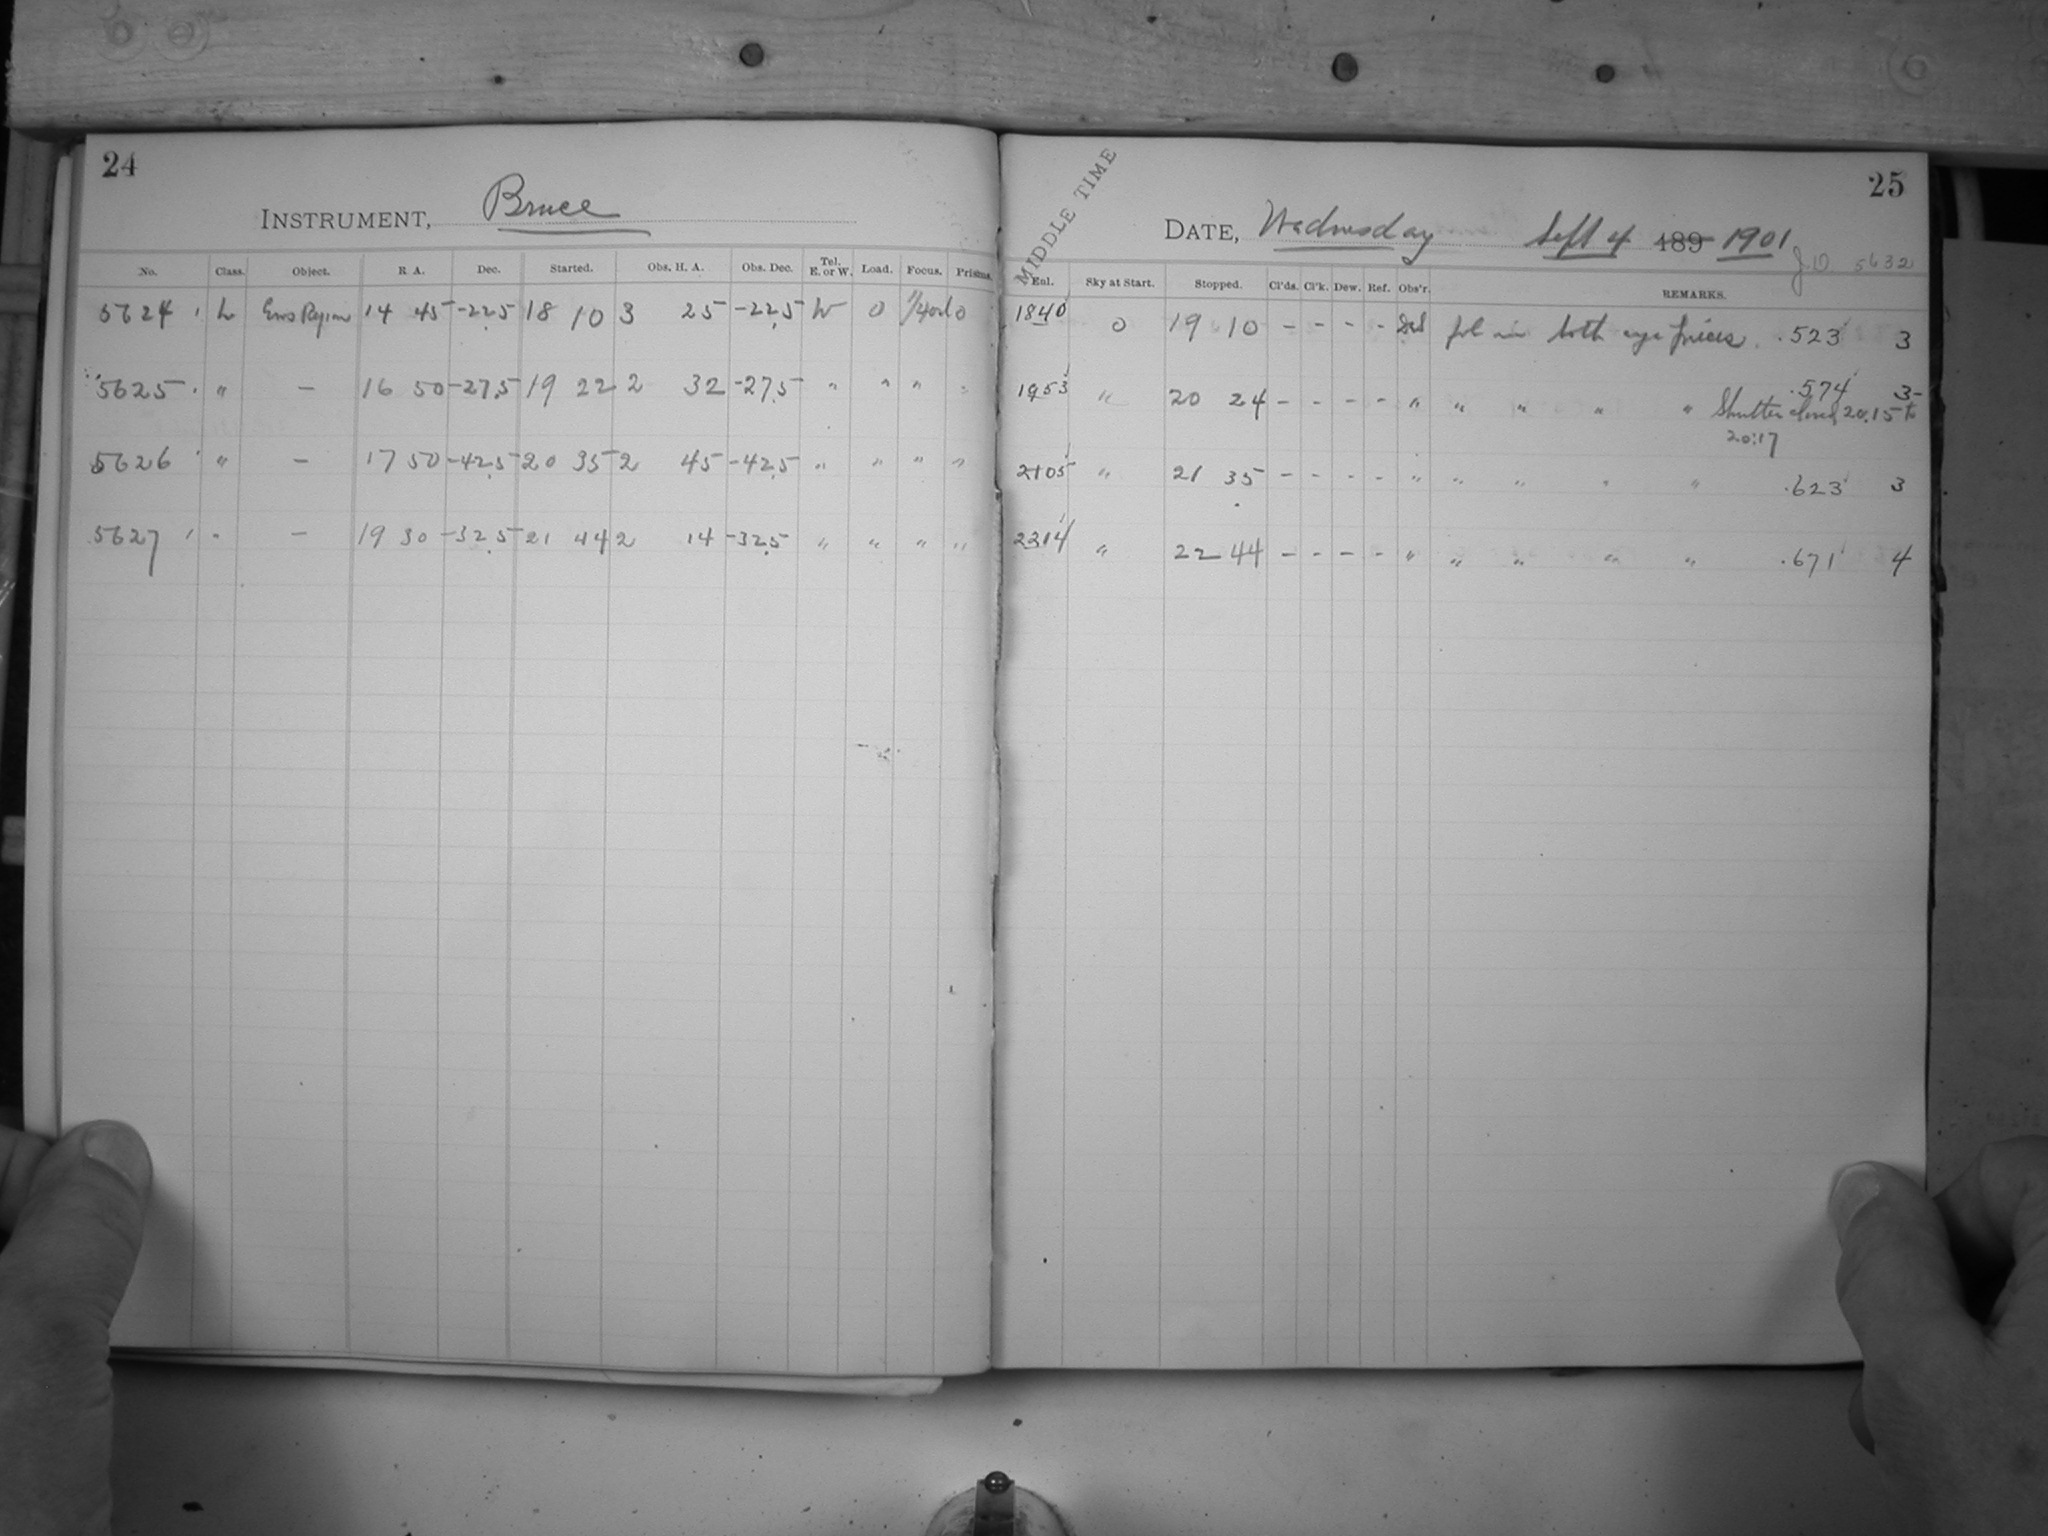 24
INSTRUMENT, Bruce
No. Class. Object. R. A. Dec. Started. Obs. H. A. Obs. Dec. Tel. E. or W. Load. Focus. Prisms.
5624 L Eros Region 14 45 -22.5 18 10 3 25 -22.5 W 0 0
5625 " — 16 50 -27.5 19 22 2 32 -27.5 " " " "
5626 " — 17 50 -42.5 20 35 2 45 -42.5 " " " "
5627 " — 19 30 -32.5 21 44 2 14 -32.5 " " " "
25
MIDDLE TIME
DATE, Wednesday Sept 4 189 1901
JD 5632
Enl. Sky at Start. Stopped. Cl'ds. Cl'k. Dew. Ref. Obs'r. REMARKS.
1840 0 19 10 - - - - fol in both eye pieces. .523 3
1953 " 20 24 - - - - " " " " " .574 3-
Shutter closed 20.15 to
20:17
2105 " 21 35 - - - - " " " " " .623 3
2214 " 22 44 - - - - " " " " " .671 4